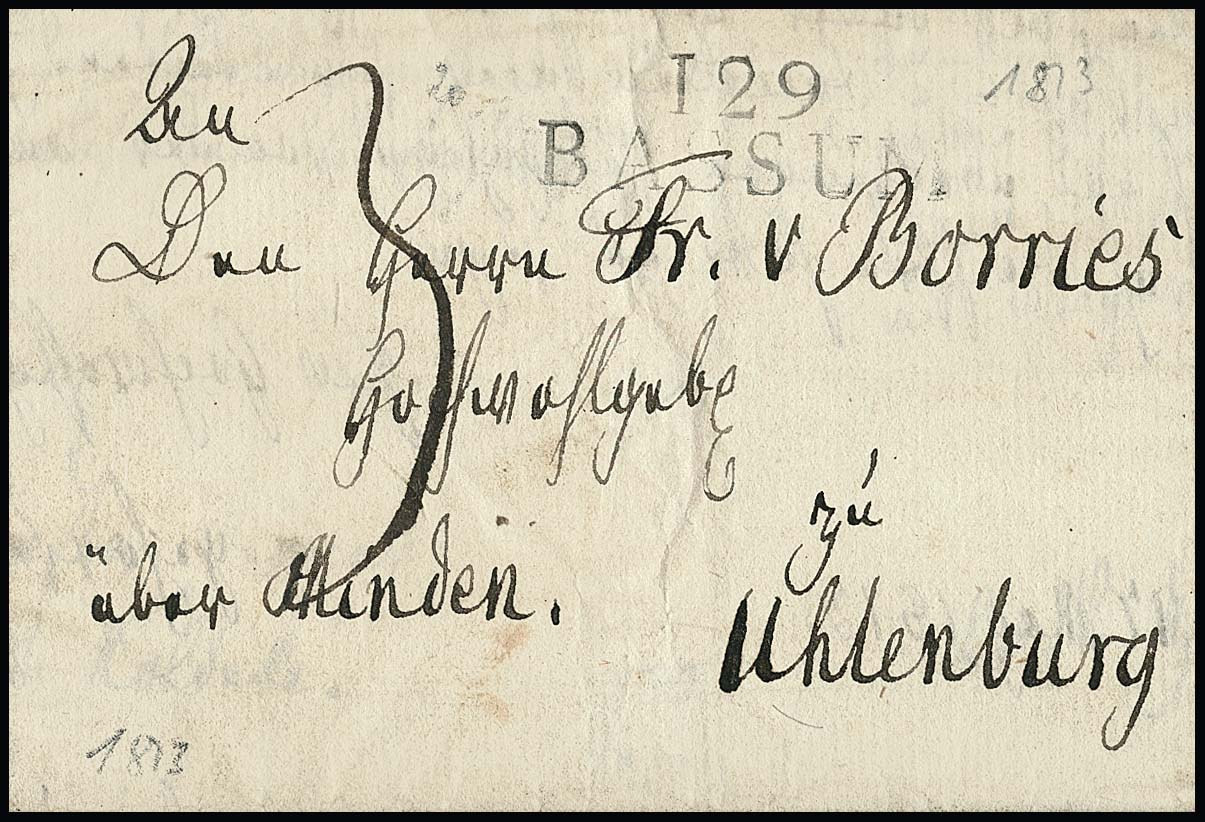 129
BASSUM
1813
An
Den Herrn Fr. v Borries
Hochwohlgeb
zu
über Minden.
Uhlenburg
1813